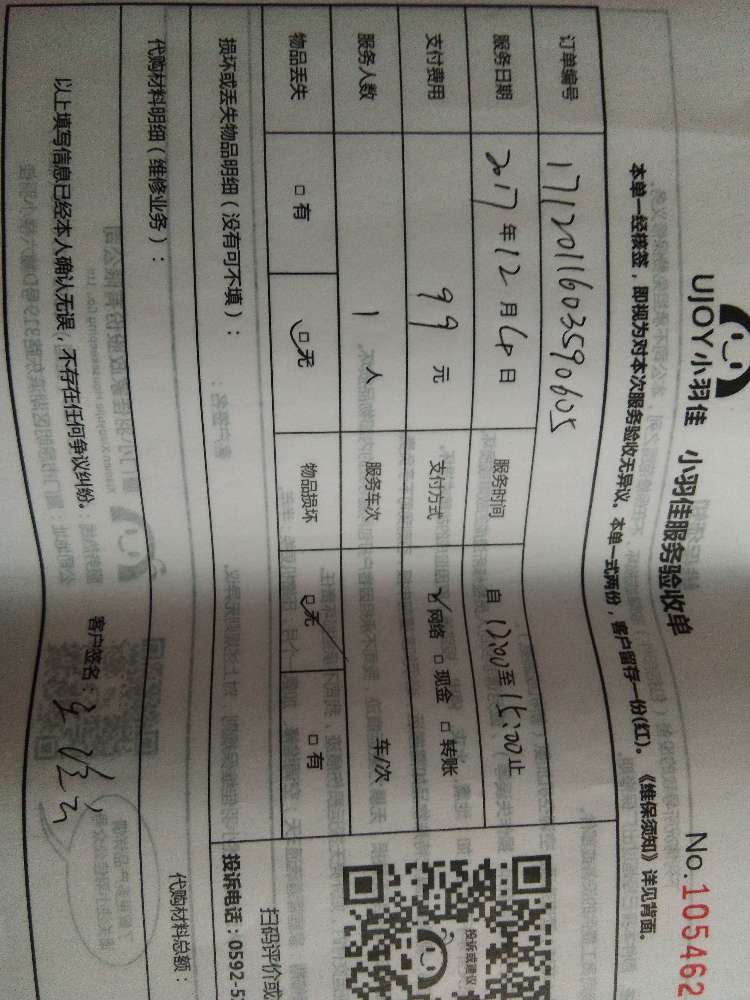 UJOY小羽佳 小羽佳服务验收单
No.105462
本单一经核签，即视为对本次服务验收无异议。本单一式两份，客户留存一份(红)。《维保须知》详见背面。
订单编号 171201160359 0605
服务日期 2017年12月4日 服务时间 自12:00至15:00止
支付费用 99元 支付方式 网络 □现金 □转账
服务人数 1人 服务车次 车/次
物品丢失 □有 □无 物品损坏 □无 □有
损坏或丢失物品明细（没有可不填）：
代购材料明细（维修业务）：
代购材料总额：
以上填写信息已经本人确认无误，不存在任何争议纠纷。
客户签名：
投诉或建议
扫码评价或
投诉电话：0592-5